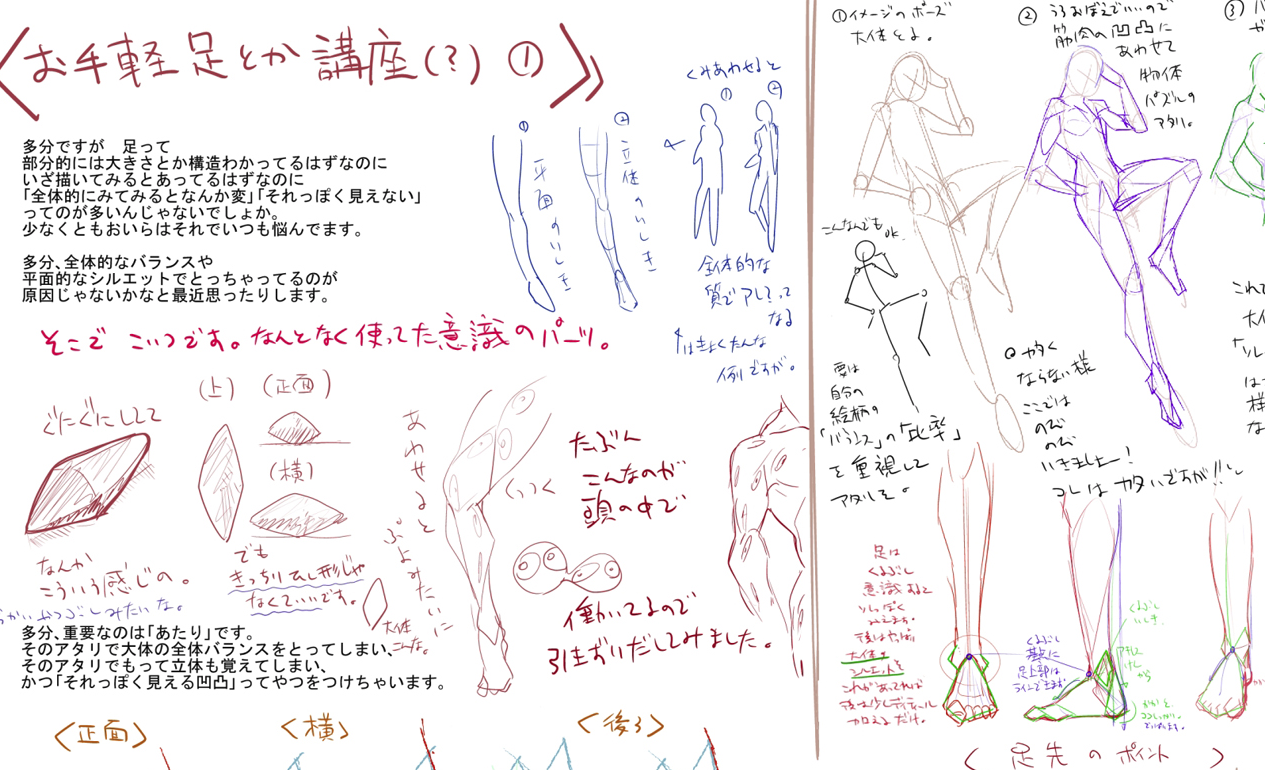 お手軽足とか講座(?)①
多分ですが 足って
部分的には大きさとか構造わかってるはずなのに
いざ描いてみるとあってるはずなのに
「全体的にみてみるとなんか変」「それっぽく見えない」
ってのが多いんじゃないでしょか。
少なくともおいらはそれでいつも悩んでます。
多分、全体的なバランスや
平面的なシルエットでとっちゃってるのが
原因じゃないかなと最近思ったりします。
①
平面のいしき
②
立体のいしき
くみあわせると
①
②
全体的な
質でアレ?って
なる
はきょくたんな
例ですが。
そこで こいつです。なんとなく使ってた意識のパーツ。
ぐにぐにしてて
(上)
(正面)
(横)
なんか
こういう感じの。
みたいな。
でも
きっちりひし形じゃ
なくていいです。
あわせると
ぷよみたいに
くっつく
大体
こんな。
たぶん
こんなのが
頭の中で
働いてるので
引きずりだしてみました。
多分、重要なのは「あたり」です。
そのアタリで大体の全体バランスをとってしまい、
そのアタリでもって立体も覚えてしまい、
かつ「それっぽく見える凹凸」ってやつをつけちゃいます。
<正面>
<横>
<後ろ>
①イメージのポーズ
大体とる。
こんなんでも
OK.
要は
自分の
絵柄の
「バランス」の「比率」
を重視して
アタルを。
② うろおぼえでいいので
筋肉の凹凸に
あわせて
物体
パズルの
アタリ。
カタく
ならない様
ここでは
のび
のび
いきましー!
コレはカタいですが!!
③
これで
大体
足は
くるぶし
意識すると
ソレっぽく
みえます。
後はやっぱ
大体の
シルエットを
これがあってれば
後は少しディティール
加えるだけ。
くるぶし
基点に
足上部は
ラインできます
くるぶし
いしき。
アキレス
けん
から
かかとを
<足先のポイント>